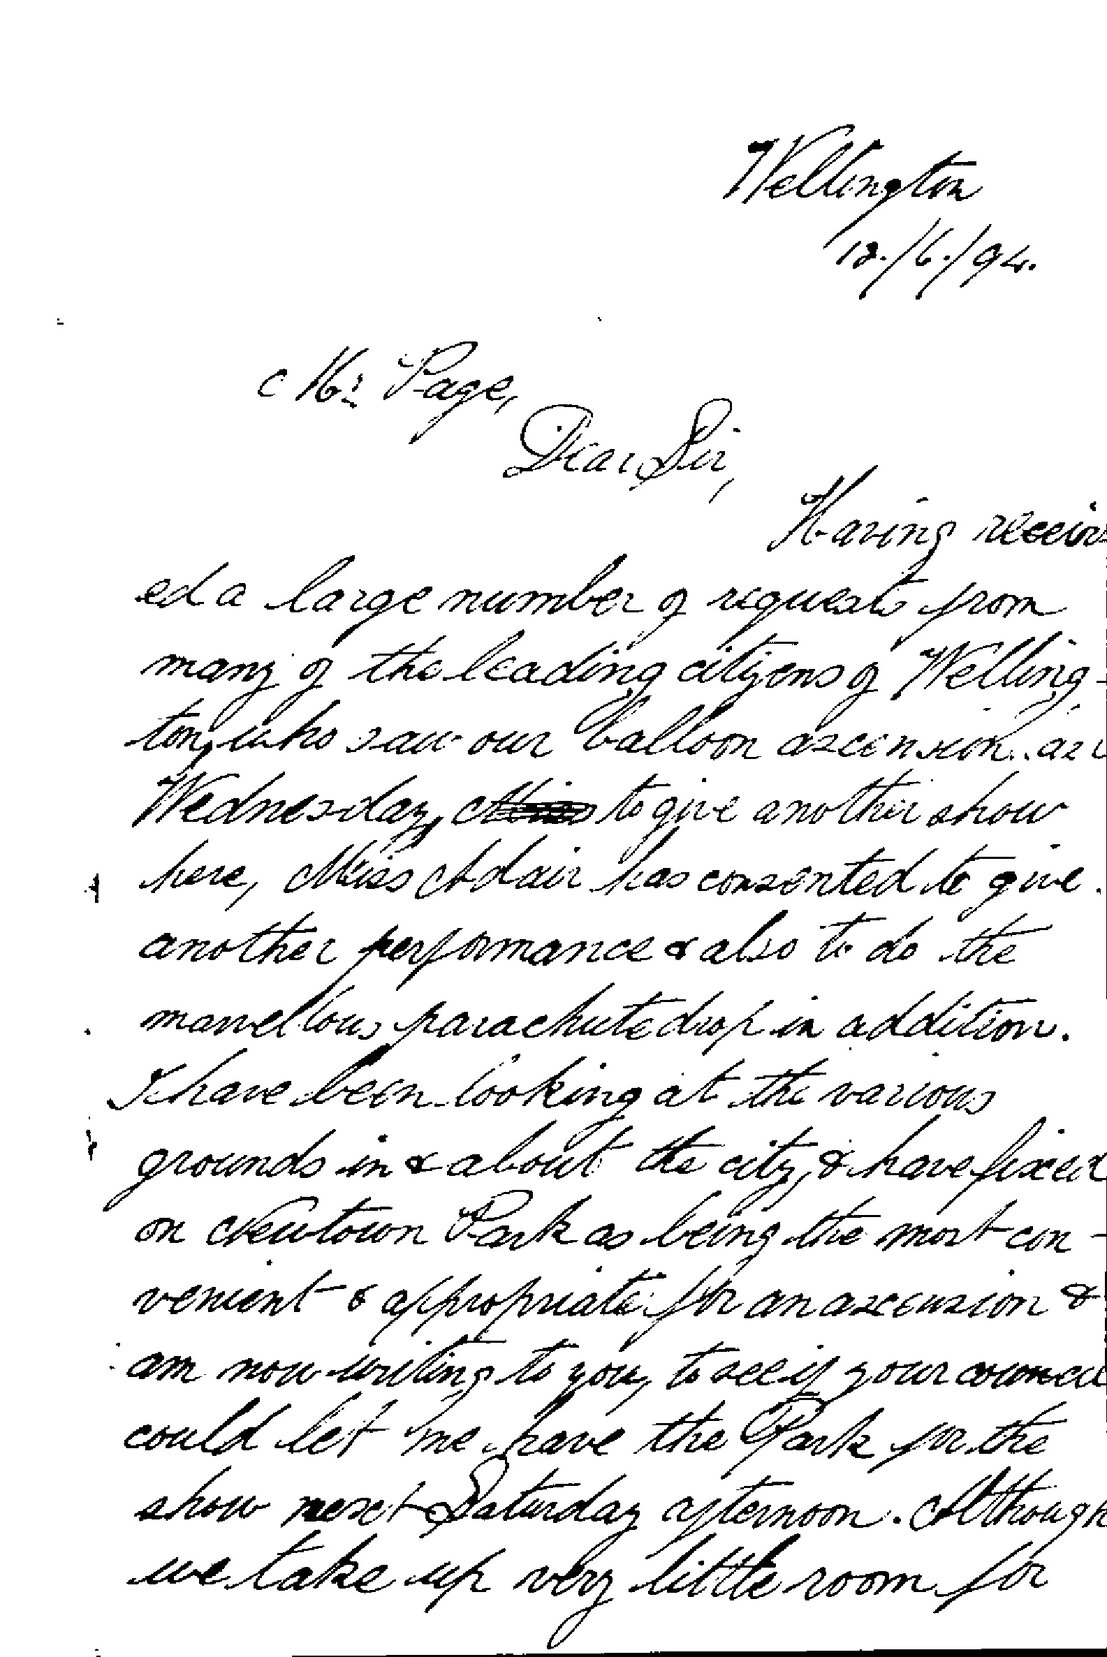 Wellington
12./6./94.
Mr. Page,
Dear Sir,
Having receiv
ed a large number of requests from
many of the leading citizens of Welling-
ton, who saw our balloon ascension
Wednesday, to give another show
here, Miss Adair has consented to give
another performance & also to do the
marvellous parachute drop in addition.
I have been looking at the various
grounds in & about the city, & have fixed
on Newtown Park as being the most con-
venient & appropriate for an ascension &
am now writing to you, to see if your council
could let me have the Park for the
show next Saturday afternoon. Although
we take up very little room for